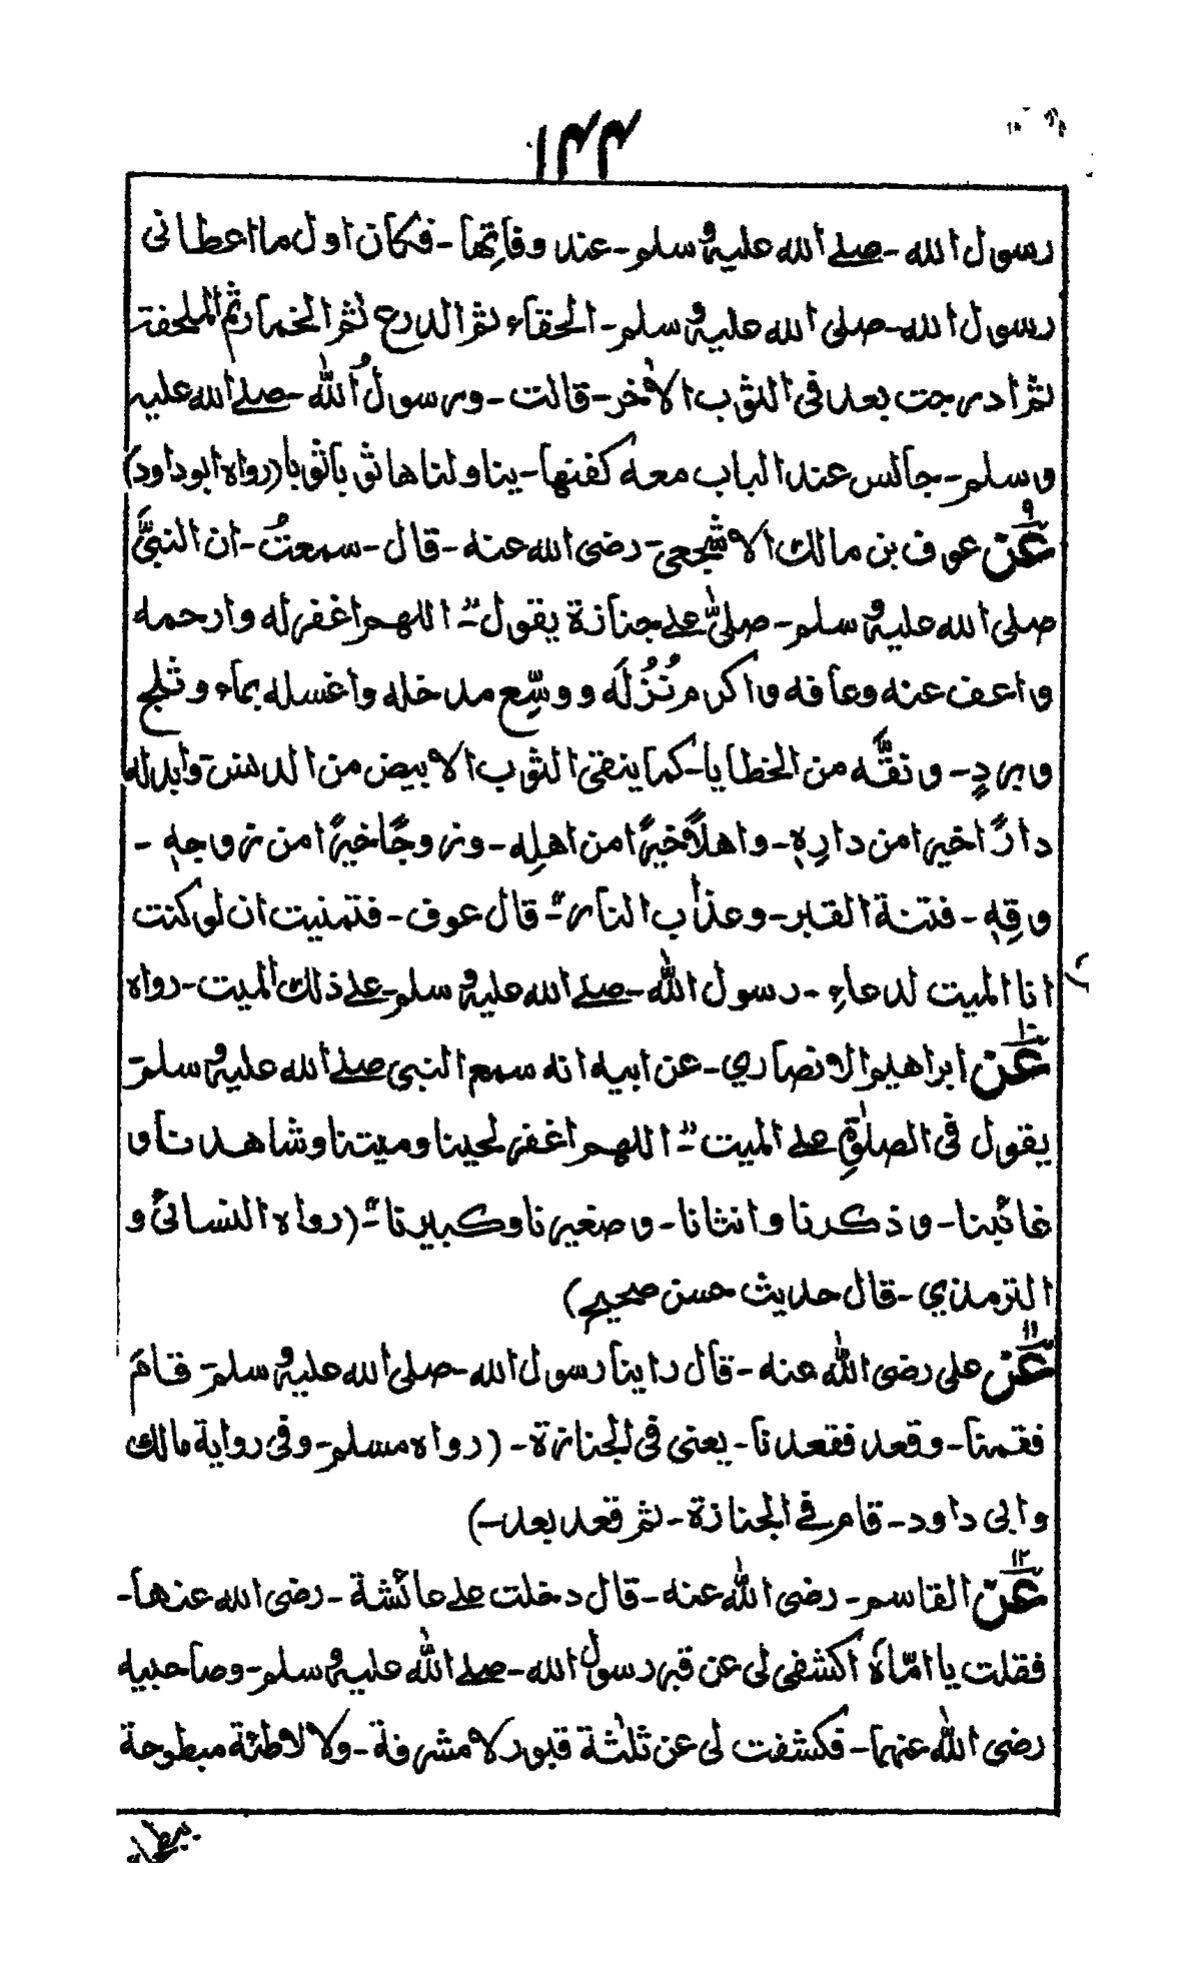 ١٤٤
رسول الله - صلے الله عليه وسلم - عند وفاتِها - فكان اول ما اعطانى
رسول الله - صلى الله عليه وسلم - الحقاء ثم الدرع ثم الخمار ثم الملحفة
ثم ادرجت بعد فى الثوب الاٰخر - قالت - ورسولُ اللّٰه - صلے الله عليه
وسلم - جالس عند الباب معه كفنها - يناولناها ثوباً ثوبا (رواه ابوداود)
٩
عَن عوف بن مالك الاشجعى - رضى الله عنه - قال - سمعتُ - ان النبىَّ
صلى الله عليه وسلم - صلىّٰ علے جنازة يقول " اللهم اغفر له وارحمه
واعف عنه وعافه واكرم نُزُلَه ووسِّع مدخله واغسله بماء وثلج
وبردٍ - ونقَّه من الخطايا - كما ينقى الثوب الابيض من الدنس وابدله
دارًا خيرا من دارِهٖ - واهلاً خيرًا من اهلِه - وزوجًا خيرًا من زوجهٖ -
وقِهٖ - فتنة القبر - وعذاب النار " قال عوف - فتمنيت ان لو كنت
انا الميت لدعاءِ - رسول اللّٰه - صلے الله عليه وسلم - علے ذلك الميت - رواه
١٠
عَن ابراهيم الانصاري - عن ابيه انه سمع النبى صلے الله عليه وسلم -
يقول فى الصلوٰةِ علے الميت " اللهم اغفر لحينا وميتنا وشاهدنا و
غائبنا - وذكرنا وانثانا - وصغيرنا وكبيرنا " (رواه النسائى و
الترمذي - قال حديث حسن صحيح)
١١
عَن على رضى اللّٰه عنه - قال راينا رسول الله - صلى الله عليه وسلم - قامَ
فقمنا - وقعد فقعدنا - يعنى فى الجنازة - (رواه مسلم - وفى رواية مالك
وابى داود - قام فے الجنازة - ثم قعد بعد -)
١٢
عَن القاسم - رضى اللّٰه عنه - قال دخلت علے عائشة - رضى الله عنها -
فقلت يا امّاهْ اكشفى لى عن قبر رسول الله - صلے اللّٰه عليه وسلم - وصاحبيه
رضى اللّٰه عنهما - فكشفت لى عن ثلٰثة قبور لا مشرفة - ولا لاطئة مبطوحة